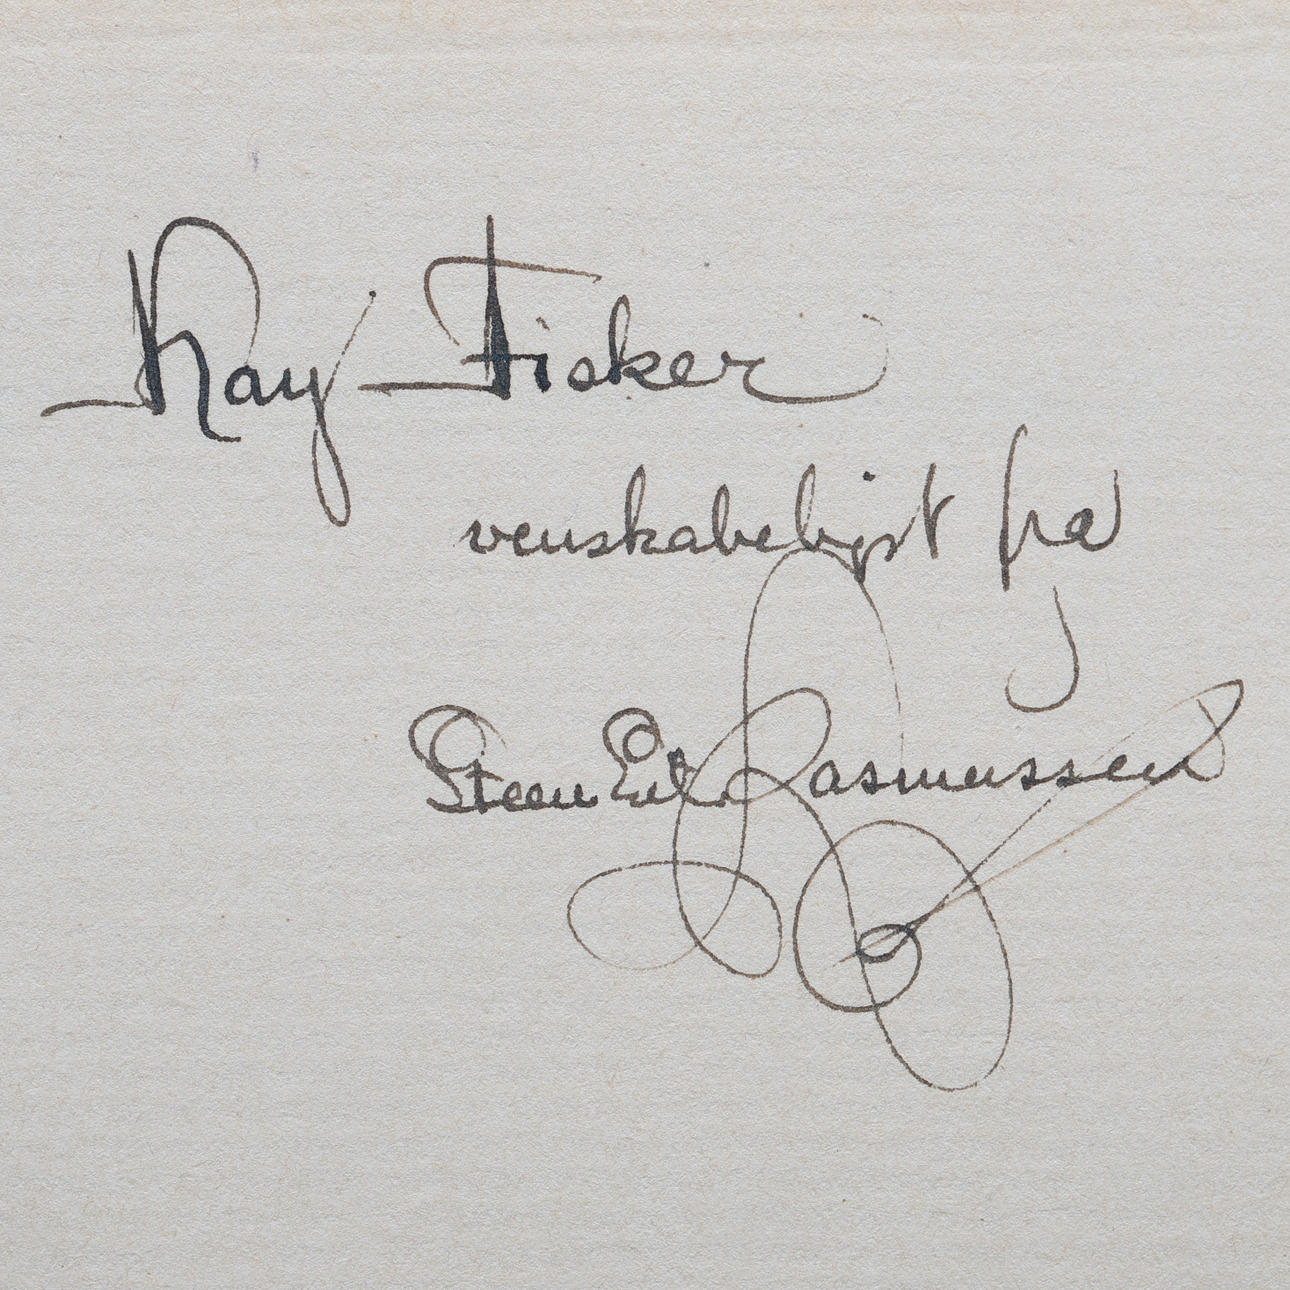 Kay Fisker
venskabeligst fra
Steen Eiler Rasmussen